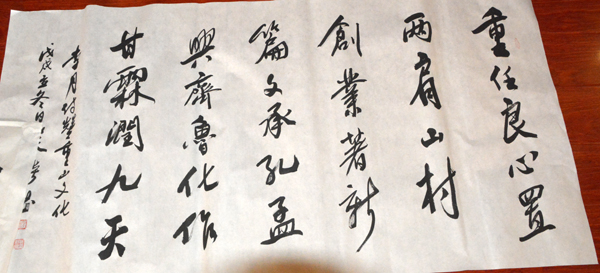 重任良心置
两肩山村
創業著新
篇文承孔孟
興齊魯化作
甘霖潤九天
李月
重山文化
戊戌立冬日